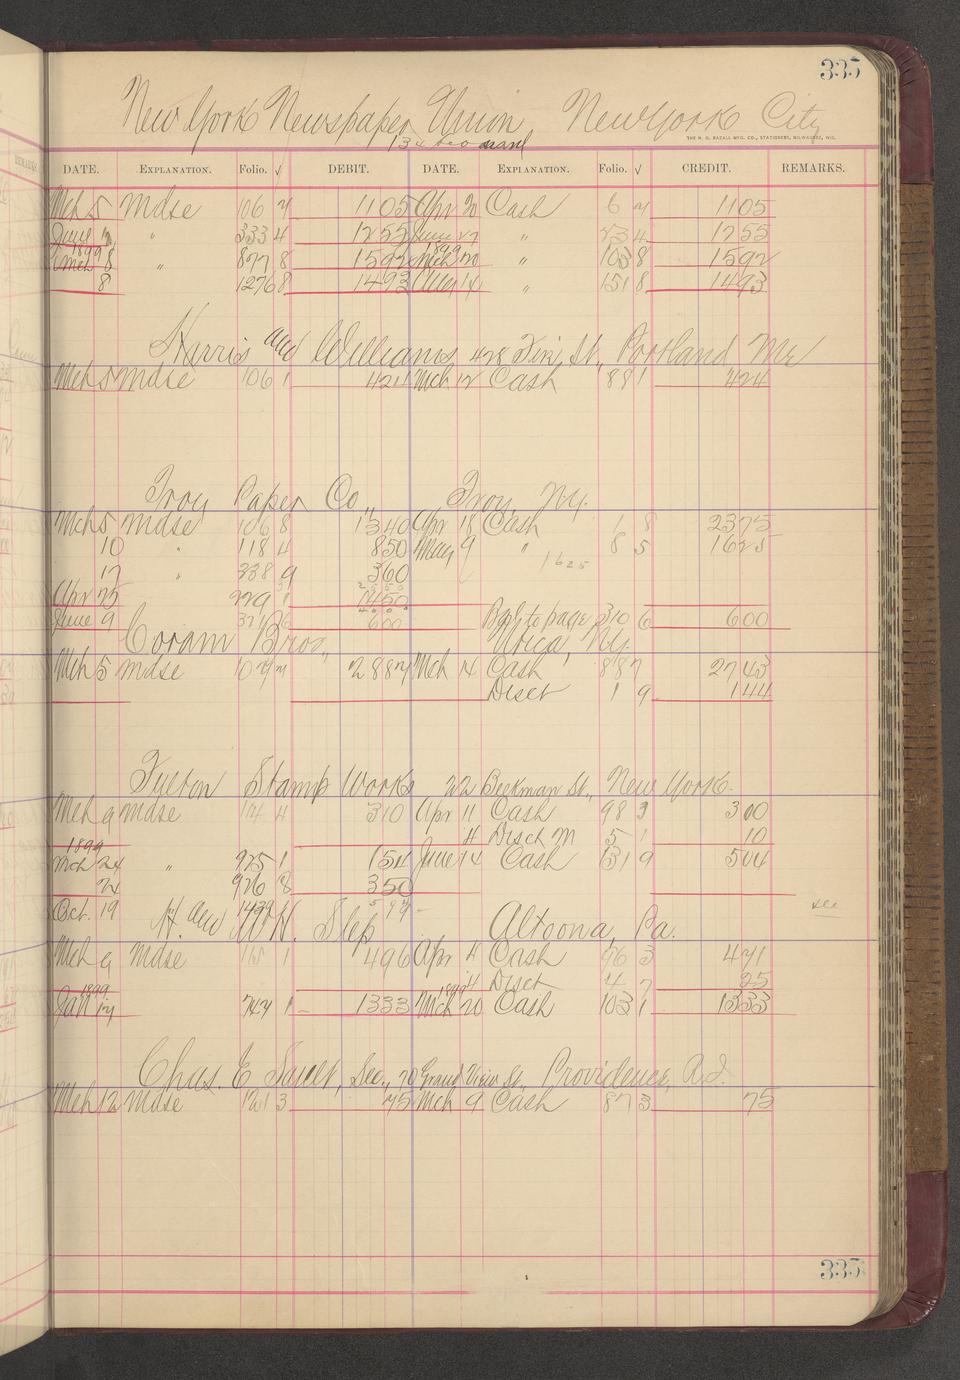 335
New York Newspaper Union, New York City
THE H. G. RAZALL MFG. CO., STATIONERS, MILWAUKEE, WIS.
DATE. EXPLANATION. Folio. √ DEBIT. DATE. EXPLANATION. Folio. √ CREDIT. REMARKS.
Mch 5 Mdse 106 7 1105 Apr 20 Cash 6 7 1105
June 7 " 333 4 1255 June 27 " 23 4 1255
1899 1899
Mch 8 " 877 8 1592 Mch 20 " 103 8 1592
8 1276 8 1493 " 151 8 1493
Harris and Williams, 428 St., Portland Me
Mch 5 Mdse 106 1 424 Mch 12 Cash 88 1 424
Troy Paper Co., Troy, N.Y.
Mch 5 Mdse 106 8 1340 Apr 18 Cash 1 8 2375
10 " 118 4 850 May 9 " 8 5 1625
1625
17 " 238 9 360
2550
Apr 25 229 1 1450
4000
June 9 321 6 600 Bal to page 310 6 600
Coram Bros., Utica, N.Y.
Mch 5 Mdse 107 7 2887 Mch 14 Cash 88 7 2743
Disct 1 9 144
Fulton Stamp Works 22 Beekman St., New York.
Mch 9 Mdse 114 4 310 Apr 11 Cash 98 3 300
11 Disct M 5 1 10
1899
Mch 24 " 925 1 154 June 14 Cash 131 9 504
24 926 8 350
Oct. 19 1439 597 see
H. and W. H. Slep Altoona, Pa.
Mch 9 Mdse 115 1 496 Apr 4 Cash 96 3 471
4 Disct 4 7 25
1899 1899
Jan 17 747 1 1333 Mch 20 Cash 103 1 1333
Chas. E Sault, Sec., 70 Grand View St., Providence, R.I.
Mch 12 Mdse 121 3 75 Mch 9 Cash 87 3 75
335